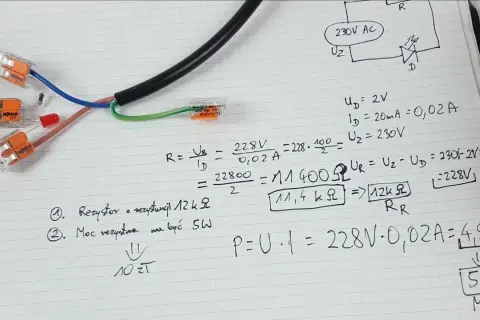 R
230V AC
U_Z
D
U_D = 2V
I_D = 20mA = 0,02A
U_Z = 230V
R = U_R / I_D = 228V / 0,02A = 228 · 100/2 =
= 22800/2 = 11400Ω
11,4 kΩ => 12kΩ
R_R
U_R = U_Z - U_D = 230V-2V
=228V
1. Rezystor o rezystancji 12kΩ
2. Moc rezystora ma być 5W
10 zł
P = U · I = 228V · 0,02A = 4,
5